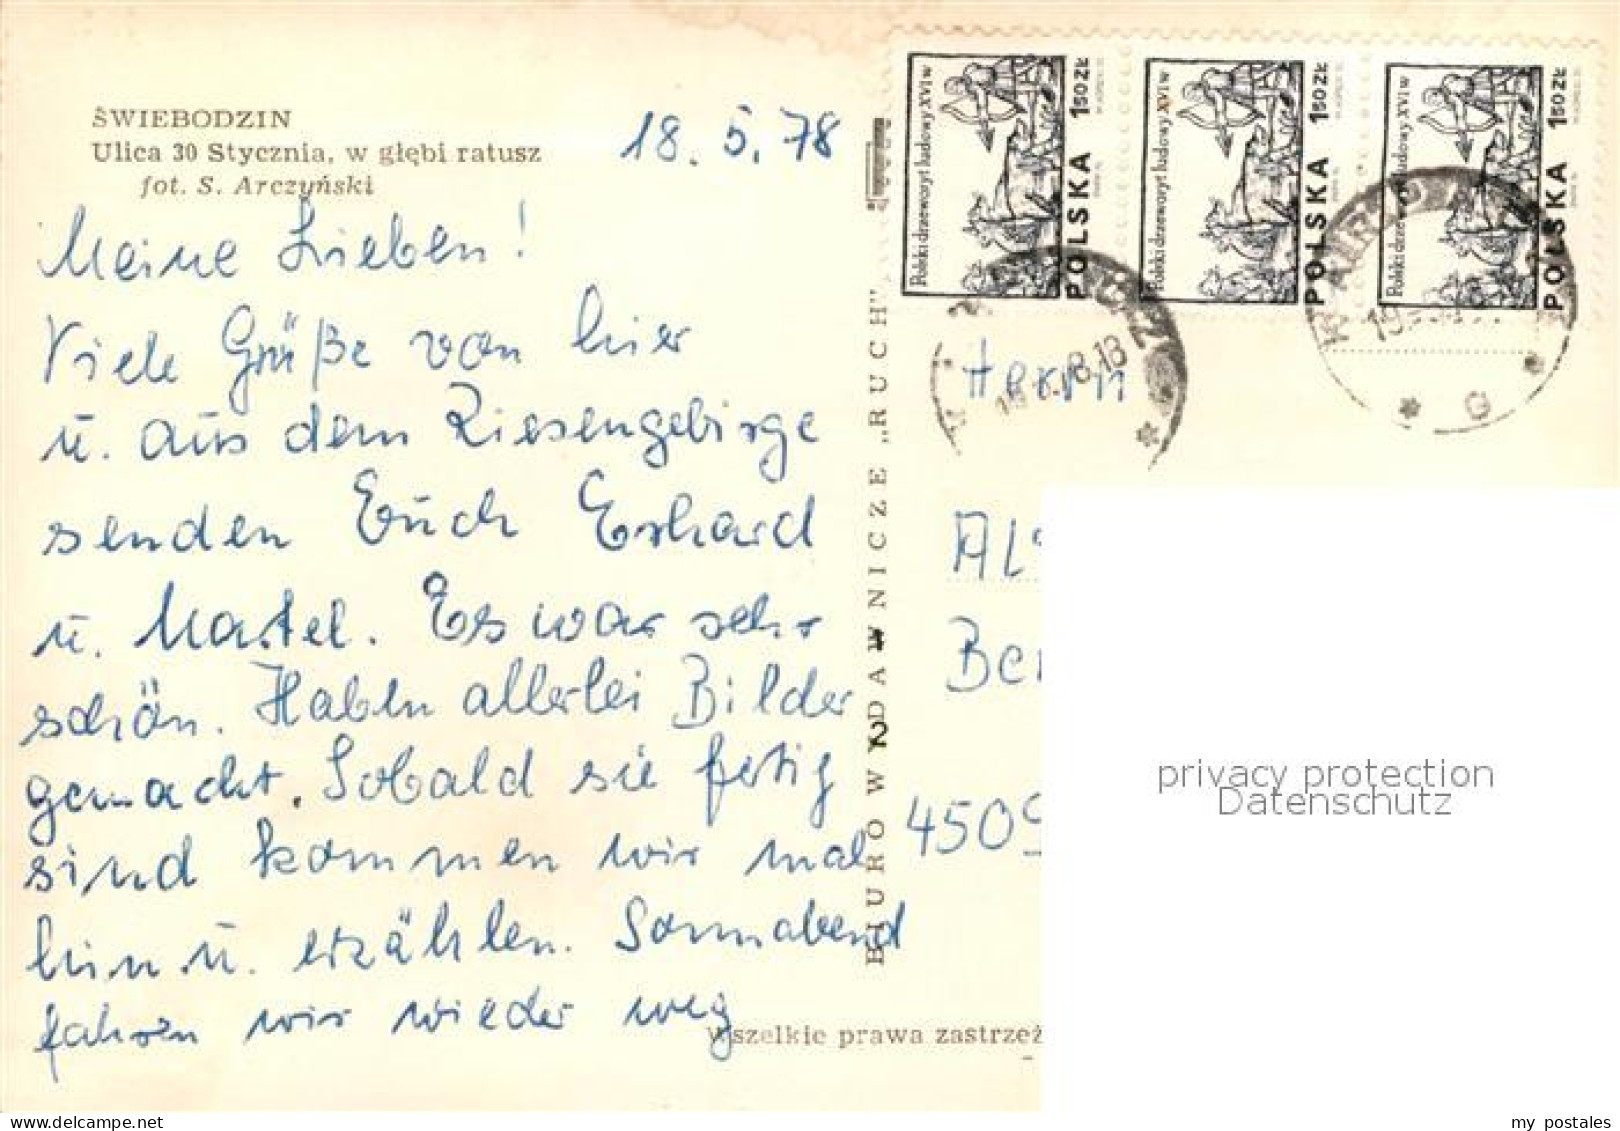 ŚWIEBODZIN
Ulica 30 Stycznia, w głębi ratusz
fot. S. Arczyński
18. 5. 78
Meine Lieben!
Viele Grüße von hier
u. aus dem Riesengebirge
senden Euch Erhard
u. Martel. Es war sehr
schön. Haben allerlei Bilder
gemacht. Sobald sie fertig
sind kommen wir mal
hin u. erzählen. Sonnabend
fahren wir wieder weg
BIURO WYDAWNICZE „RUCH"
2
Wszelkie prawa zastrzeż
Polski drzeworyt ludowy XVI w
POLSKA 150 ZŁ
Polski drzeworyt ludowy XVI w
POLSKA 150 ZŁ
Polski drzeworyt ludowy XVI w
POLSKA 150 ZŁ
Herrn
450
privacy protection
Datenschutz
my postales